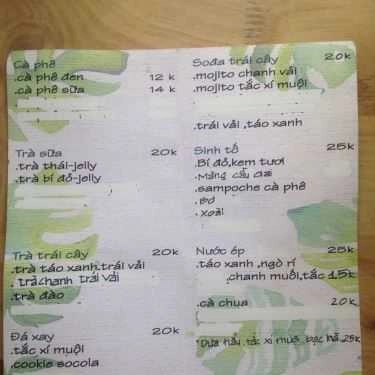 Cà phê
.cà phê đen 12 k
.cà phê sữa 14 k
Trà sữa 20k
.trà thái-jelly
.trà bí đỏ-jelly
Trà trái cây 20k
.trà táo xanh,trái vải
.trà chanh trái vải
.trà đào
Đá xay 20k
.tắc xí muội
.cookie socola
Sođa trái cây 20k
.mojito chanh vải
.mojito tắc xí muội
.trái vải ,táo xanh
Sinh tố 25k
.Bí đỏ,kem tươi
.Mãng cầu dai
.sampoche cà phê
.Bơ
.Xoài
Nước ép 25k
.táo xanh ,ngò rí
,chanh muối,tắc 15k
.cà chua 20k
.Dưa hấu, tắc xí muội, bạc hà 25k